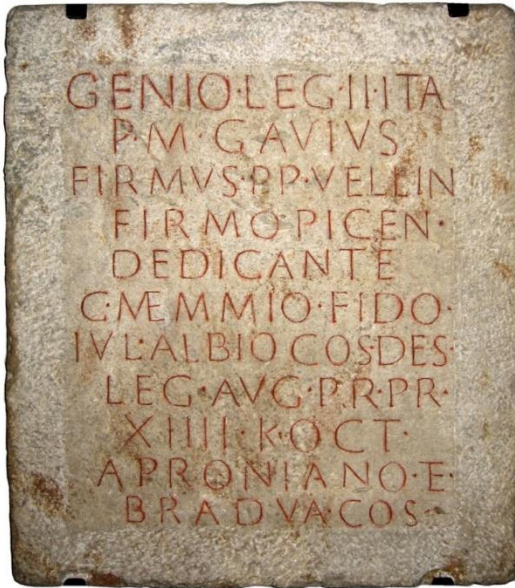 GENIO·LEG·III·ITA
P·M·GAVIVS
FIRMVS·P·P·VELLIN
FIRMO·PICEN·
DEDICANTE
C·MÆMMIO·FIDO·
IVL·ALBIO COS·DES·
LEG·AVG·PR·PR·
XIIII·K·OCT·
APRONIANO·E·
BRADVA·COS·